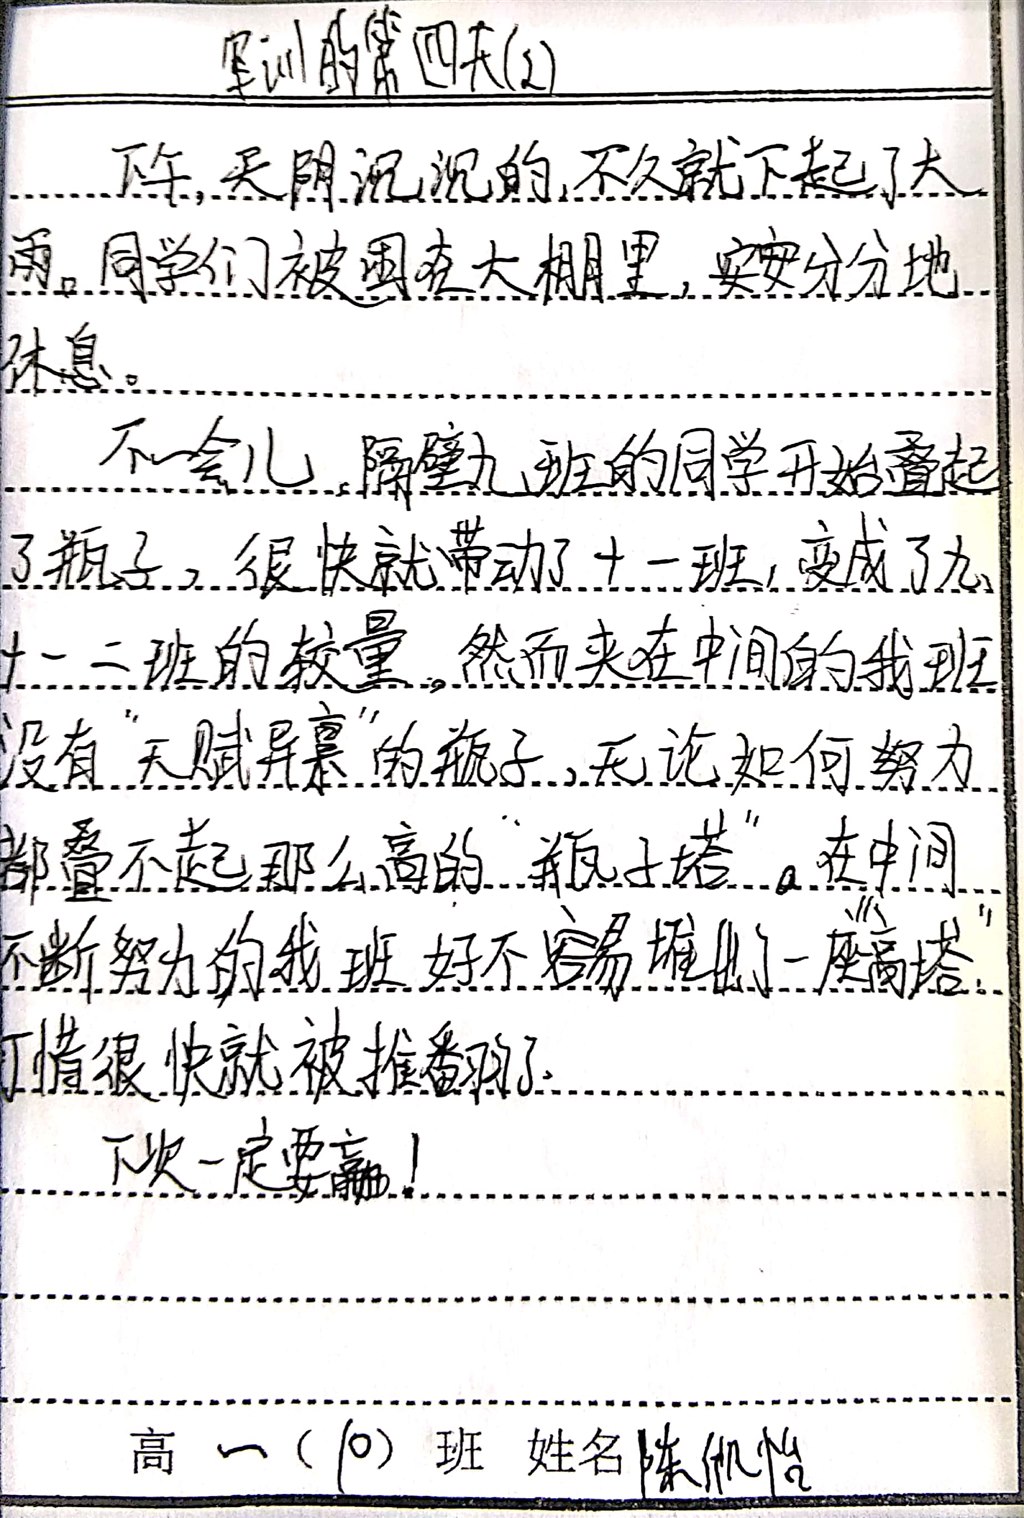 军训的第四天(2)
下午,天阴沉沉的,不久就下起了大
雨。同学们被困在大棚里,安安分分地
休息。
不一会儿,隔壁九班的同学开始叠起
了瓶子,很快就带动了十一班,变成了九、
十一二班的较量。然而夹在中间的我班
没有“天赋异禀”的瓶子,无论如何努力
都叠不起那么高的“瓶子塔”。在中间
不断努力的我班好不容易堆出了一座“高塔”
可惜很快就被推翻了.
下次一定要赢!
高一(10)班 姓名陈 怡